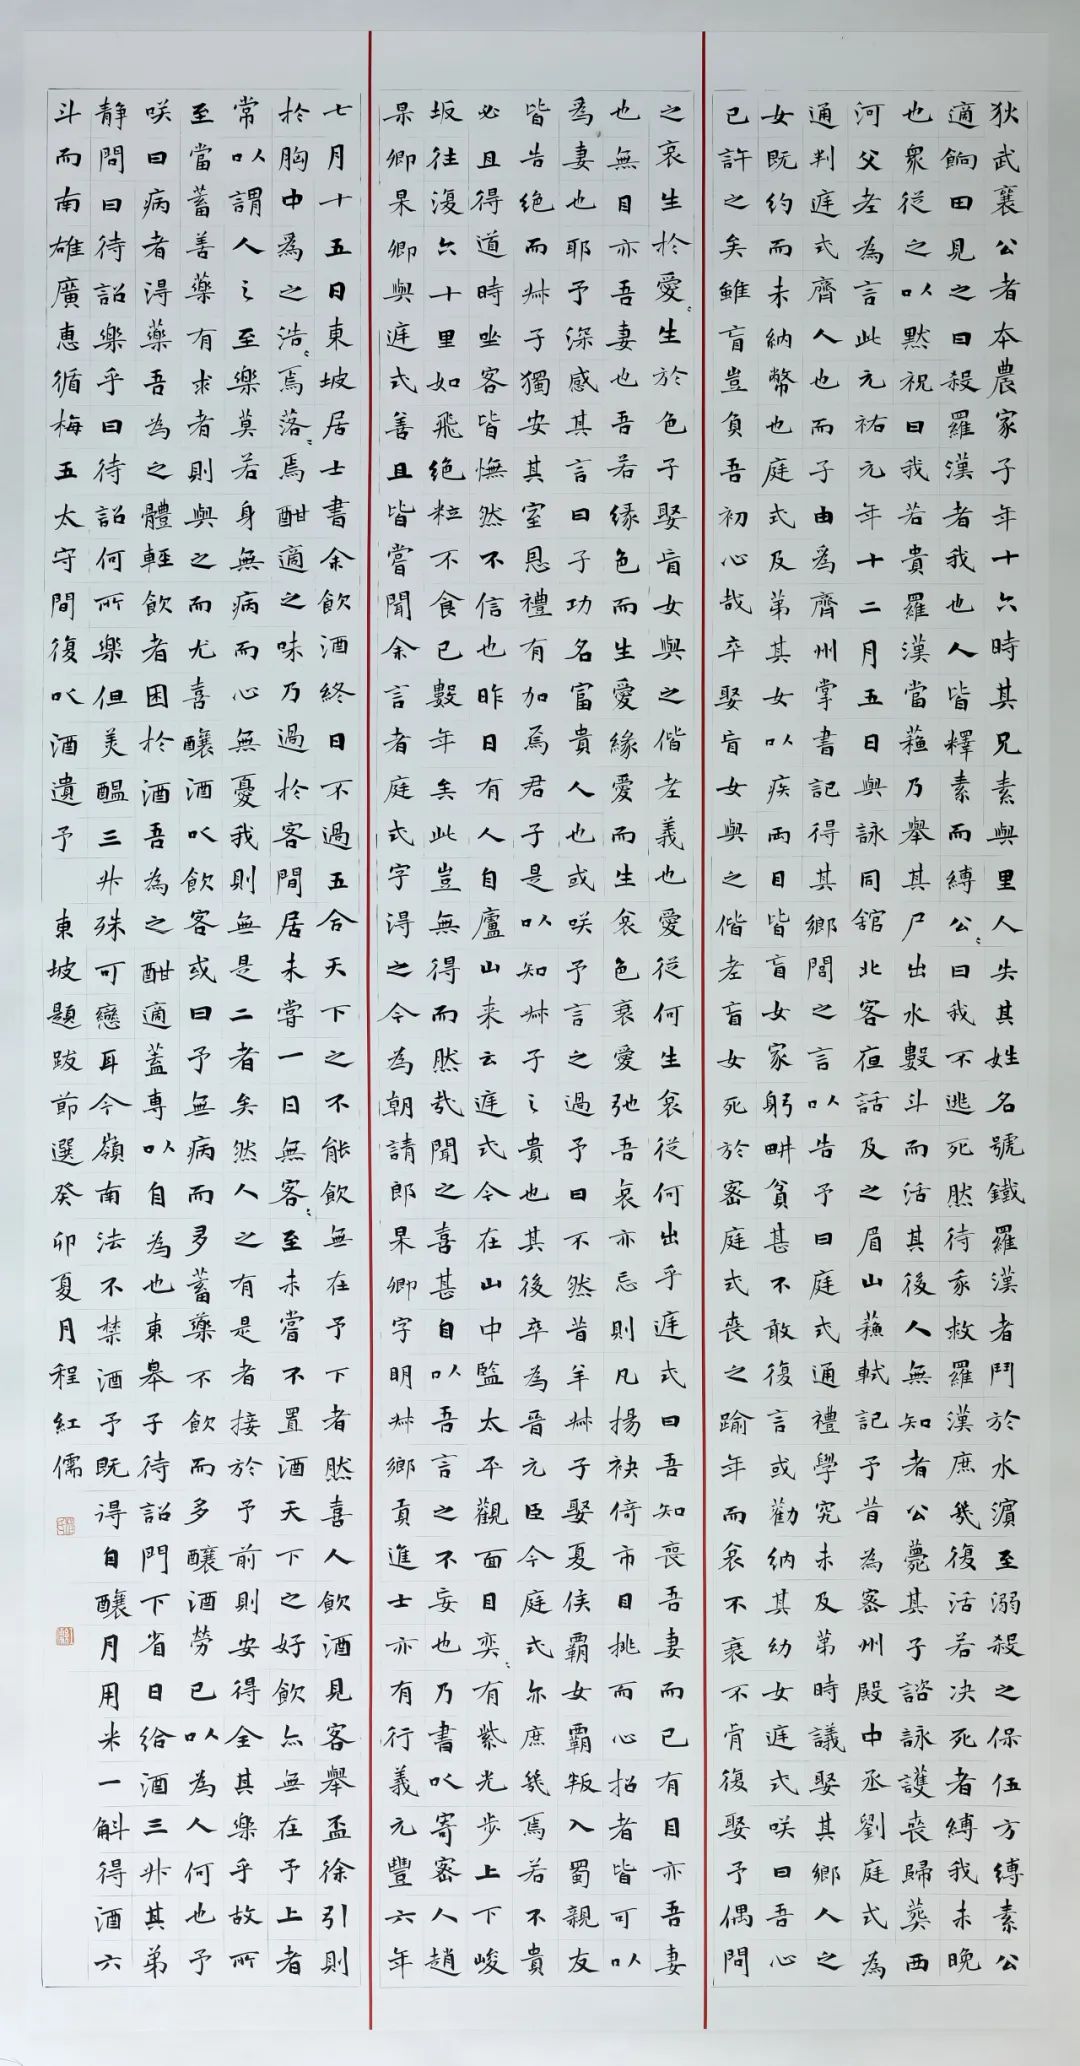 狄武襄公者本農家子年十六時其兄素與里人失其姓名號鐵羅漢者鬥於水濱至溺殺之保伍方縛素公
適餉田見之曰殺羅漢者我也人皆釋素而縛公々曰我不逃死然待我救羅漢庶幾復活若決死者縛我未晚
也眾從之以默祝曰我若貴羅漢當蘇乃舉其尸出水數斗而活其後人無知者公薨其子諮詠護喪歸葬西
河父老為言此元祐元年十二月五日與詠同舘北客夜話及之眉山蘇軾記予昔為密州殿中丞劉庭式為
通判庭式齊人也而子由為齊州掌書記得其鄉閭之言以告予曰庭式通禮學究未及第時議娶其鄉人之
女既約而未納幣也庭式及第其女以疾兩目皆盲女家躬畊貧甚不敢復言或勸納其幼女庭式咲曰吾心
已許之矣雖盲豈負吾初心哉卒娶盲女與之偕老盲女死於密庭式喪之踰年而哀不衰不肯復娶予偶問
之哀生於愛々生於色子娶盲女與之偕老義也愛從何生哀從何出乎庭式曰吾知喪吾妻而已有目亦吾妻
也無目亦吾妻也吾若緣色而生愛緣愛而生哀色衰愛弛吾哀亦忘則凡揚袂倚市目挑而心招者皆可以
為妻也耶予深感其言曰子功名富貴人也或咲予言之過予曰不然昔羊叔子娶夏侯霸女霸叛入蜀親友
皆告絕而叔子獨安其室恩禮有加焉君子是以知叔子之貴也其後卒為晉元臣今庭式亦庶幾焉若不貴
必且得道時坐客皆憮然不信也昨日有人自廬山来云庭式今在山中監太平觀面目奕々有紫光步上下峻
坂往復六十里如飛絕粒不食已數年矣此豈無得而然哉聞之喜甚自以吾言之不妄也乃書以寄密人趙
杲卿杲卿與庭式善且皆嘗聞余言者庭式字得之今為朝請郎杲卿字明叔鄉貢進士亦有行義元豐六年
七月十五日東坡居士書余飲酒終日不過五合天下之不能飲無在予下者然喜人飲酒見客舉盃徐引則
於胸中為之浩々焉落々焉酣適之味乃過於客間居未嘗一日無客々至未嘗不置酒天下之好飲亦無在予上者
常以謂人之至樂莫若身無病而心無憂我則無是二者矣然人之有是者接於予前則安得全其樂乎故所
至當蓄善藥有求者則與之而尤喜釀酒以飲客或曰予無病而多蓄藥不飲而多釀酒勞己以為人何也予
咲曰病者得藥吾為之體輕飲者困於酒吾為之酣適蓋專以自為也東皋子待詔門下省日給酒三升其弟
静問曰待詔樂乎曰待詔何所樂但美醞三升殊可戀耳今嶺南法不禁酒予既得自釀月用米一斛得酒六
斗而南雄廣惠循梅五太守間復以酒遺予 東坡題跋節選癸卯夏月程紅儒